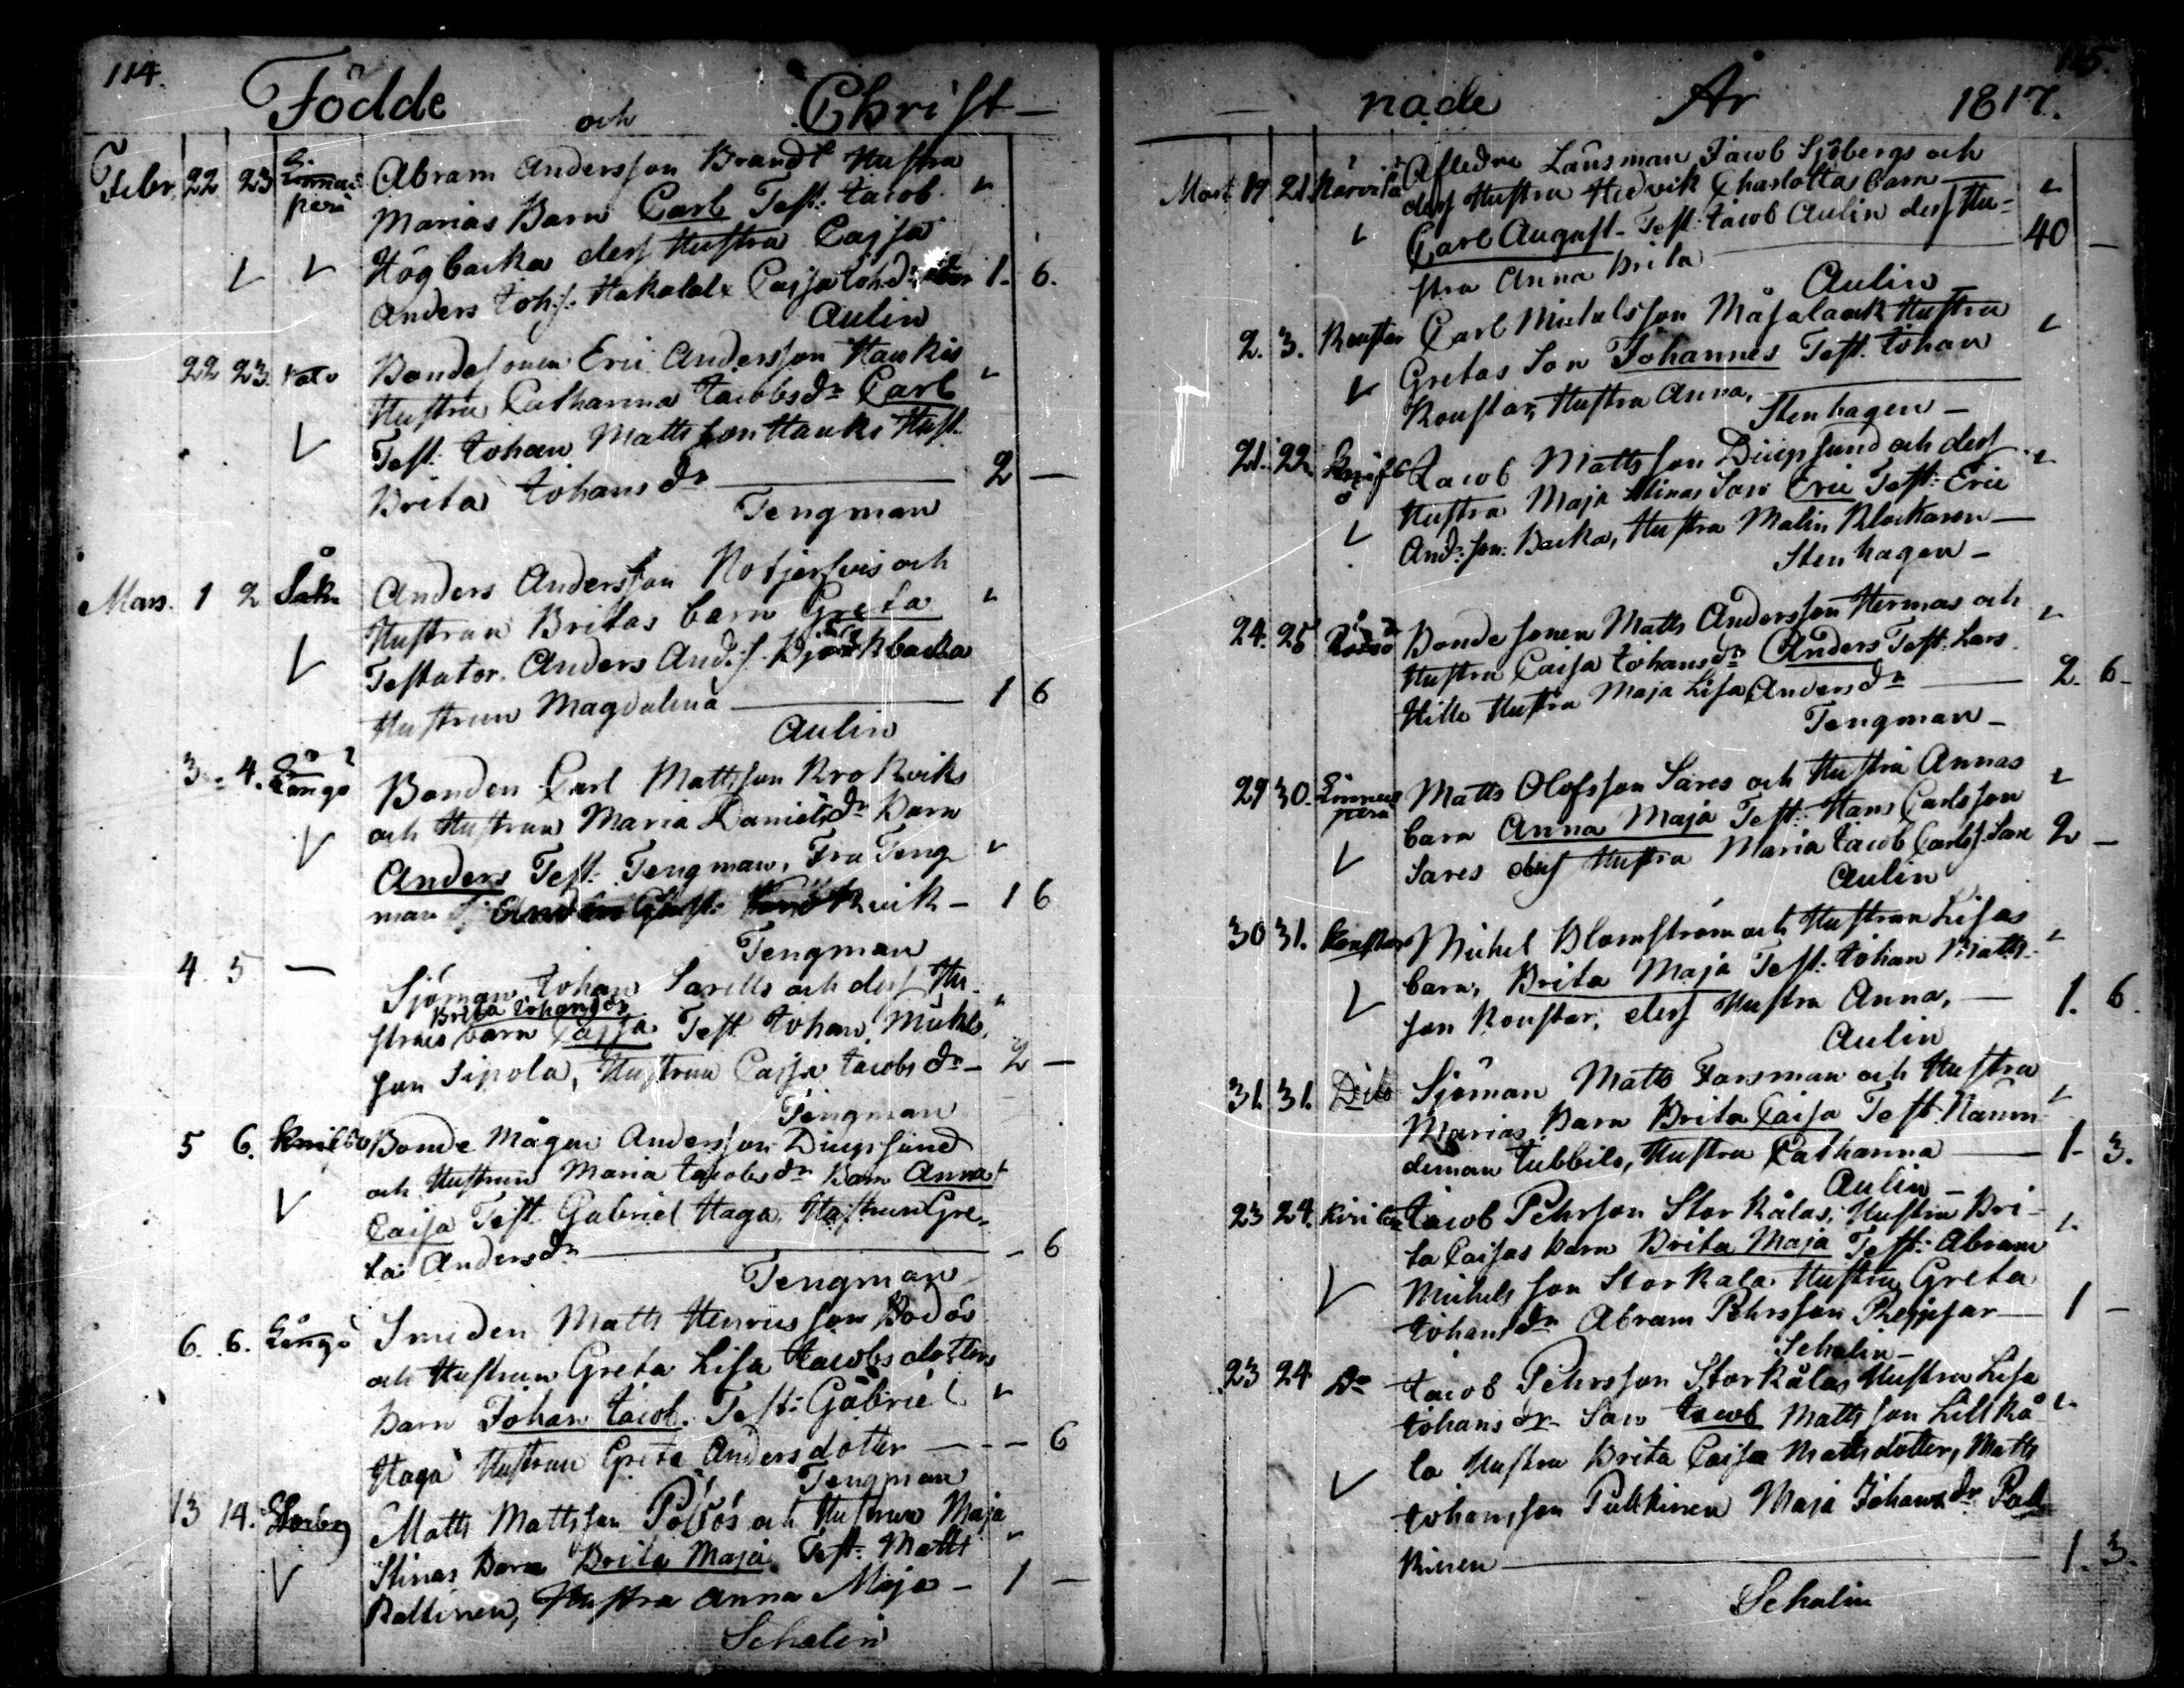 114.
Födde och Christ-
Febr. 22 23 Abram Andersson Brandt Hustru
peri Marias Barn Carl Test: Jacob
Högbacka dess Hustru Cajsa
Anders Joh:s. Hakalax Cajsa Joh:dr 1. 6.
Aulin
22 23. Bondesonen Eric Andersson Haukis
Hustru Catharina Jacobs dr Carl
Test: Johan Mattsson Hauks Hust.
Brita Johans dr 2 —
Tengman
Mars. 1 2 Såk: Anders Andersson Notjersvis och
Hustrun Britas barn Greta
Testator. Anders And:s. Björkbacka
Hustrun Magdalena 1 6
Aulin
3 4. Långö Bonden Carl Mattsson Krokviks
och Hustrun Maria Daniels dr Barn
Anders Test: Tengman, Fru Teng
man vik — 1 6
Tengman
4. 5 — Sjöman Johan Sarells och dess Hu-
Brita Johans dr
struns barn Cajsa Test Johan Michls
son Sipola, Hustrun Cajsa Jacobs dr — 2 —
Tengman
5 6. Knifsö Bonde Mågen Andersson Diupsund
och Hustrun Maria Jacobs dr Barn Anna
Caisa Test. Gabriel Haga, Hustrun Gre-
ta Anders dr — 6
Tengman
6. 6. Långö Smeden Matts Henricsson Bodös
och Hustrun Greta Lisa Jacobs dotters
Barn Johan Jacob. Test: Gabriel
Haga Hustrun Greta Anders dotter — — — 6
Tengman
13 14. Storby Matts Mattsson Pövös och Hustrun Maja
Stinas Barn Brita Maja Test: Matts
Kaltinen, Hustru Anna Maja — 1 —
Schalin
115.
nade År 1817.
Mart 19 21. Karvila Afledne Länsman Jacob Sjöbergs och
dess Hustru Hedvik Charlotta barn
Carl August - Test: Jacob Aulin dess Hu-
stru Anna Brita 40 —
Aulin
2. 3. Roustar Carl Michelsson Måsalaak Hustru
Gretas Son Johannes Test. Johan
Roustar, Hustru Anna,
Stenhagen —
21. 22. Jacob Mattsson Diupsund och dess
Hustru Maja Stinas Son Eric Test: Eric
And:son. Backa, Hustru Malin Klockaren —
Stenhagen —
24. 25 Rödsö Bondesonen Matts Andersson Hermas och
Hustru Caisa Johans dr Anders Test. Lars
Hille Hustru Maja Lisa Anders dr 2. 6 —
Tengman —
29 30. Linnus
pera Matts Olofsson Sares och Hustru Annas
barn Anna Maja Test: Hans Carlsson
Sares dess Hustru Maria Jacob Carlss. 2 —
Aulin
30 31. Roustar Michel Blomström och Hustrun Lisas
barn, Brita Maja Test: Johan Matts-
son Roustar, dess Hustru Anna, — 1. 6
Aulin
31. 31. Dito Sjöman Matts Forsman och Hustru
Marias Barn Brita Caisa Test. Namn
deman Jubbils, Hustru Catharina — 1 — 3.
Aulin —
23 24. Jacob Pehrsson Storkålas, Hustru Bri-
ta Caisas Barn Brita Maja Test: Abram
Michelsson Storkåla Hustru Greta
Johans dr Abram Pehrsson — 1 —
Schalin —
23 24 Do Jacob Pehrsson Storkålas Hustru Lisa
Johans dr Son Jacob Mattsson Lillkå
la Hustru Brita Caisa Mattsdotter, Matts
Johansson Pulkkinen Maja Johans dr Pulk
kinen — 1. 3.
Schalin